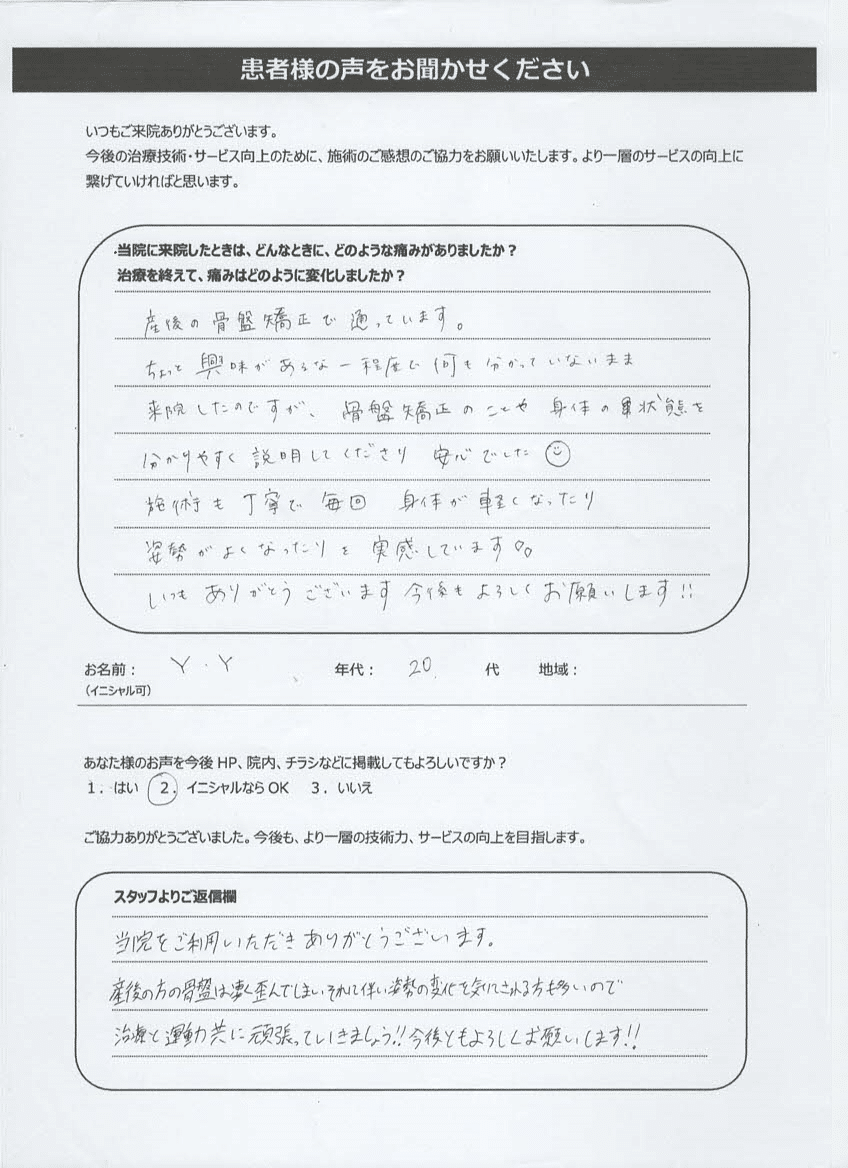 患者様の声をお聞かせください
いつもご来院ありがとうございます。
今後の治療技術・サービス向上のために、施術のご感想のご協力をお願いいたします。より一層のサービスの向上に
繋げていければと思います。
当院に来院したときは、どんなときに、どのような痛みがありましたか？
治療を終えて、痛みはどのように変化しましたか？
産後の骨盤矯正で通っています。
ちょっと興味があるな一程度で何も分かっていないまま
来院したのですが、骨盤矯正のことや身体の状態を
分かりやすく説明してくださり安心でした
施術も丁寧で毎回身体が軽くなったり
姿勢がよくなったりを実感しています
いつもありがとうございます今後もよろしくお願いします!!
お名前： Y.Y 年代： 20 代 地域：
（イニシャル可）
あなた様のお声を今後 HP、院内、チラシなどに掲載してもよろしいですか？
1．はい 2．イニシャルなら OK 3．いいえ
ご協力ありがとうございました。今後も、より一層の技術力、サービスの向上を目指します。
スタッフよりご返信欄
当院をご利用いただきありがとうございます。
産後の方の骨盤は凄く歪んでしまいそれに伴い姿勢の変化を気にされる方も多いので
治療と運動共に頑張っていきましょう!!今後ともよろしくお願いします!!